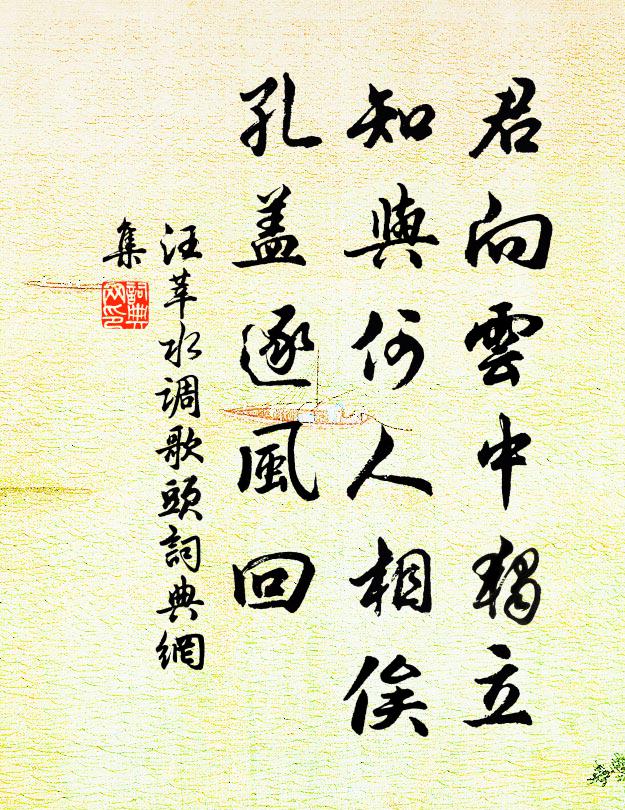 君向雲中獨立
知與何人相俟
孔盖逐風回
汪莘水调歌頭詞典網
集
詞典網印